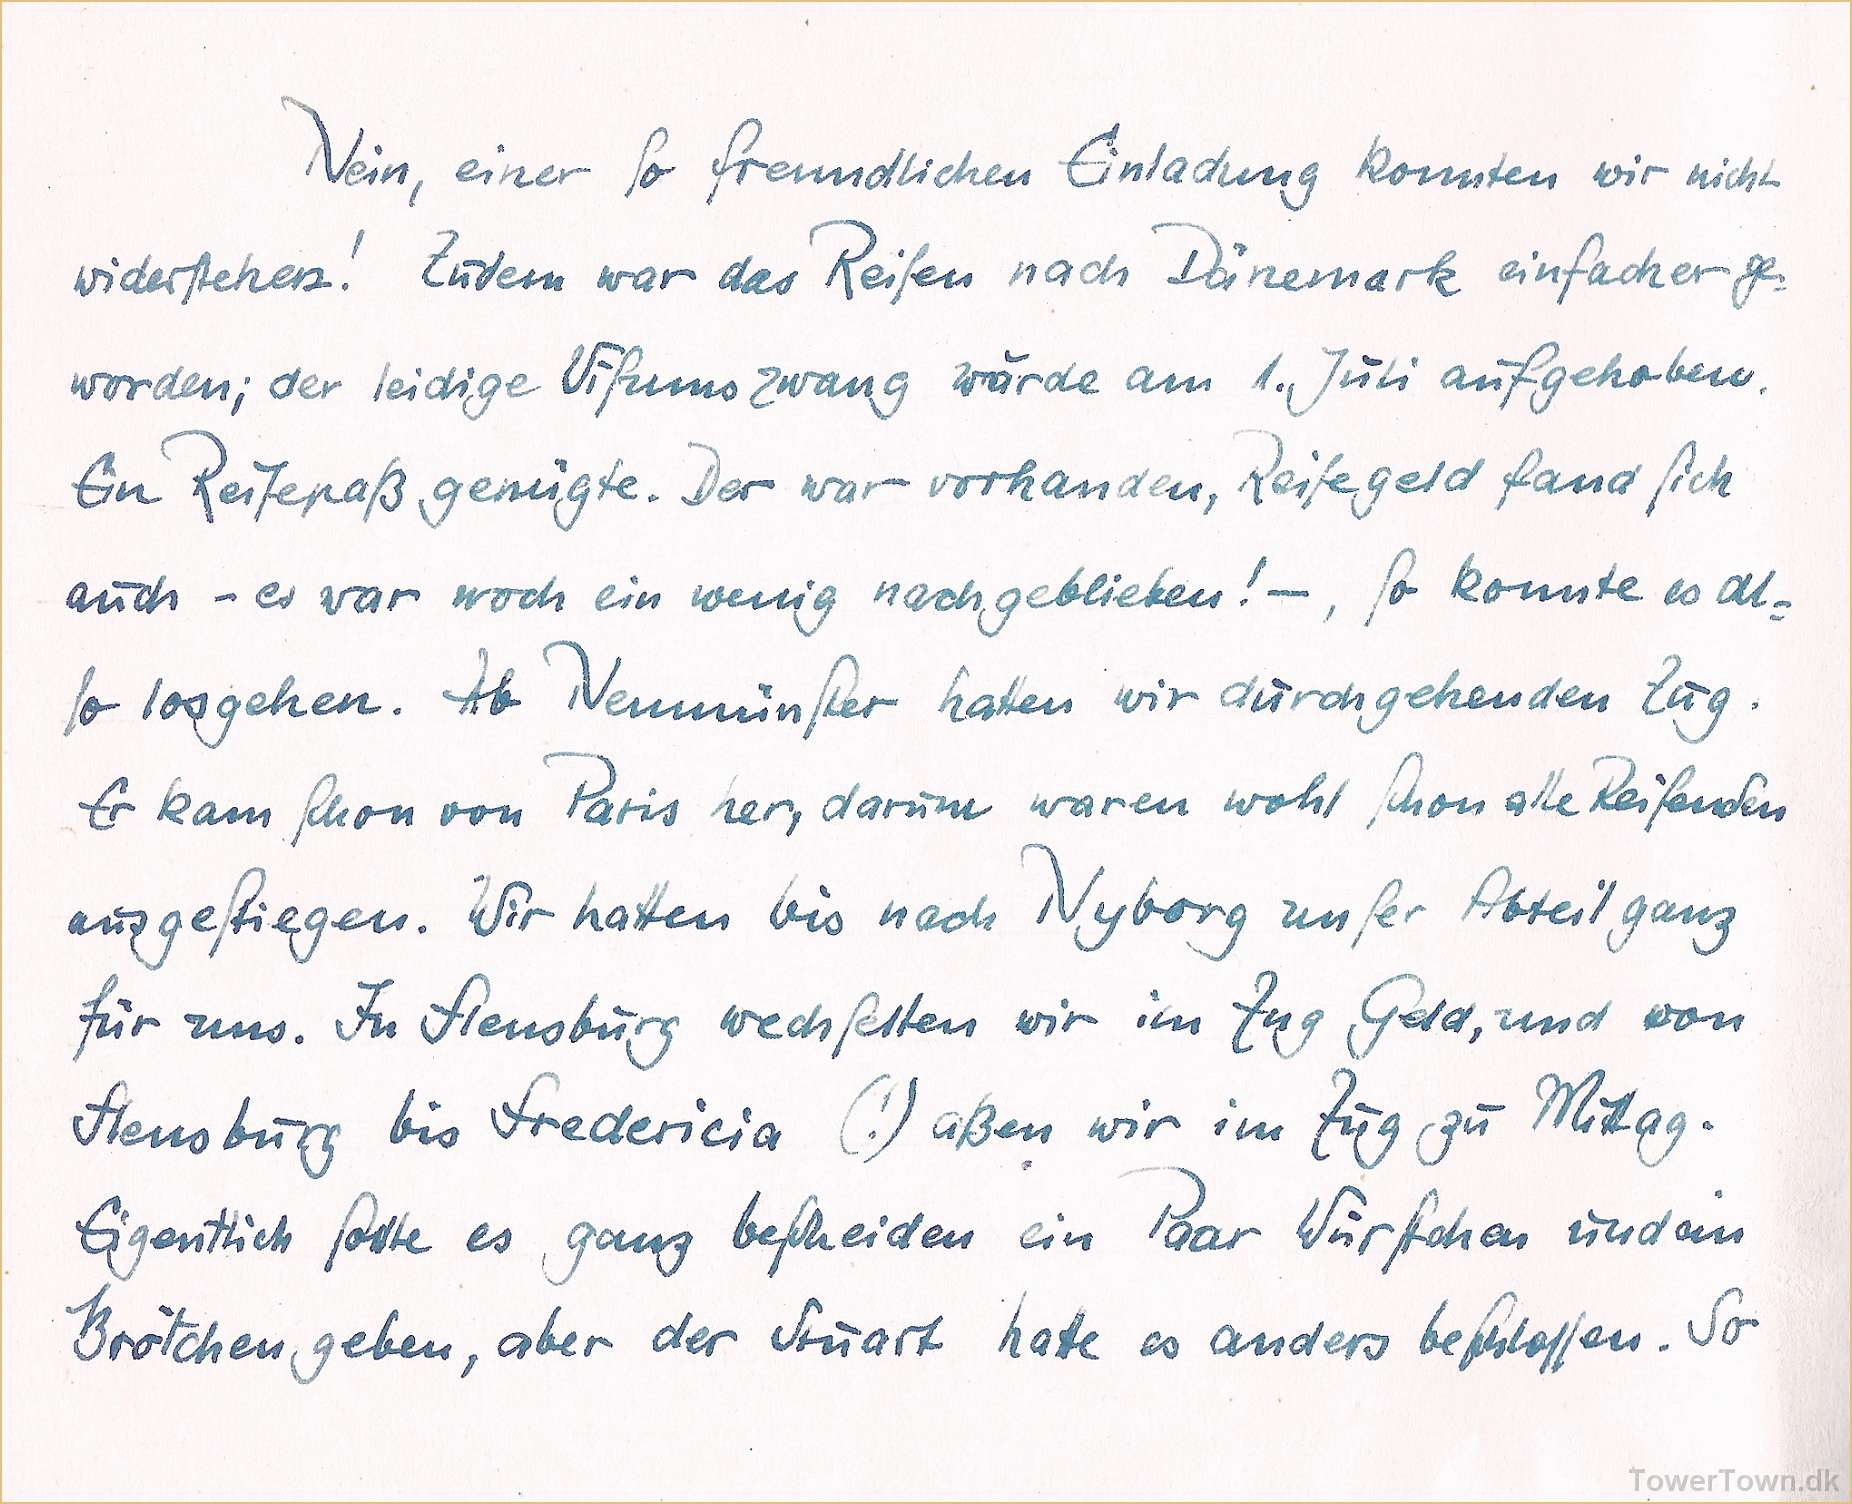 Nein, einer so freundlichen Einladung konnten wir nicht
widerstehen! Zudem war das Reisen nach Dänemark einfacher ge-
worden; der leidige Visumszwang wurde am 1. Juli aufgehoben.
Ein Reisepaß genügte. Der war vorhanden, Reisegeld fand sich
auch - es war noch ein wenig nachgeblieben! -, so konnte es al-
so losgehen. Ab Neumünster hatten wir durchgehenden Zug.
Er kam schon von Paris her, darum waren wohl schon alle Reisenden
ausgestiegen. Wir hatten bis nach Nyborg unser Abteil ganz
für uns. In Flensburg wechselten wir im Zug Geld, und von
Flensburg bis Fredericia (!) aßen wir im Zug zu Mittag.
Eigentlich sollte es ganz bescheiden ein Paar Würstchen und ein
Brötchen geben, aber der Stuart hatte es anders beschlossen. So
TowerTown.dk